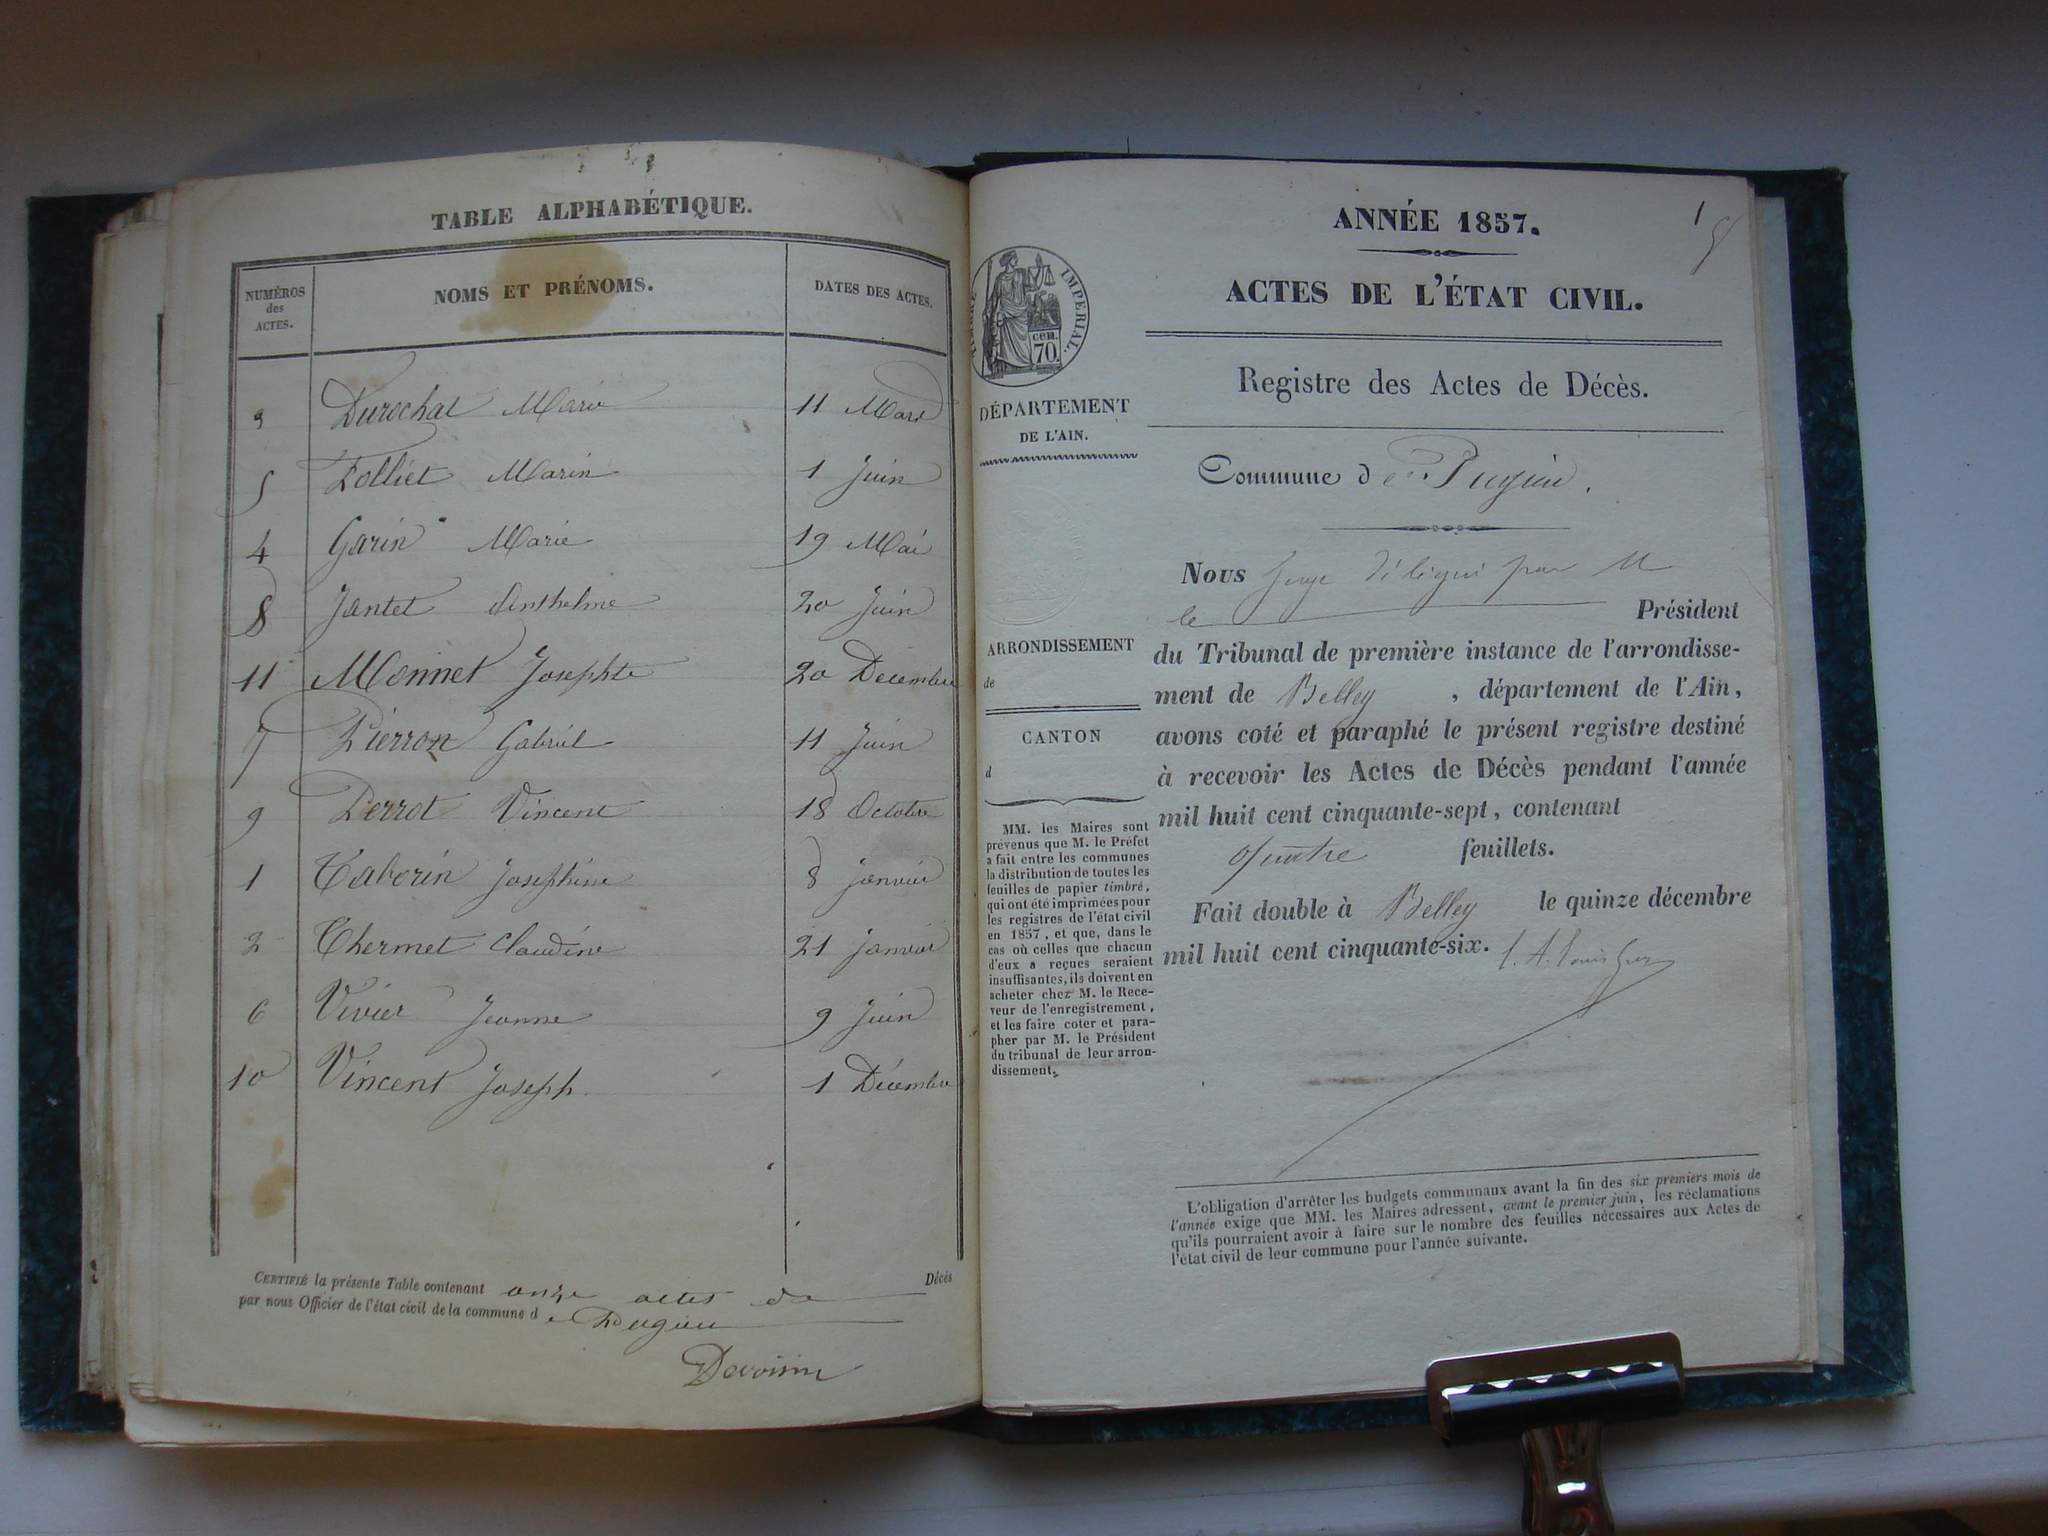 TABLE ALPHABÉTIQUE.
NUMÉROS des ACTES.
NOMS ET PRÉNOMS.
DATES DES ACTES.
3 Durochat Marie 11 Mars
5 Folliet Marin 1 Juin
4 Garin Marie 19 Mai
8 Jantet Anthelme 20 Juin
11 Monnet Josephte 20 Décembre
7 Pierron Gabriel 11 Juin
9 Perrot Vincent 18 Octobre
1 Taborin Joséphine 8 Janvier
2 Thermet Claudine 21 Janvier
6 Vivier Jeanne 9 Juin
10 Vincent Joseph 1 Décembre
CERTIFIÉ la présente Table contenant onze actes de Décès
par nous Officier de l'état civil de la commune de Pugieu
Devoisin
1
ANNÉE 1857.
ACTES DE L'ÉTAT CIVIL.
Registre des Actes de Décès.
Commune de Pugieu.
TIMBRE IMPÉRIAL.
cen.
70.
DÉPARTEMENT
DE L'AIN.
ARRONDISSEMENT
de
CANTON
d
MM. les Maires sont
prévenus que M. le Préfet
a fait entre les communes
la distribution de toutes les
feuilles de papier timbré,
qui ont été imprimées pour
les registres de l'état civil
en 1857, et que, dans le
cas où celles que chacun
d'eux a reçues seraient
insuffisantes, ils doivent en
acheter chez M. le Rece-
veur de l'enregistrement,
et les faire coter et para-
pher par M. le Président
du tribunal de leur arron-
dissement.
Nous Juge délégué par M
le Président
du Tribunal de première instance de l'arrondisse-
ment de Belley, département de l'Ain,
avons coté et paraphé le présent registre destiné
à recevoir les Actes de Décès pendant l'année
mil huit cent cinquante-sept, contenant
quatre feuillets.
Fait double à Belley le quinze décembre
mil huit cent cinquante-six.
L'obligation d'arrêter les budgets communaux avant la fin des six premiers mois de
l'année exige que MM. les Maires adressent, avant le premier juin, les réclamations
qu'ils pourraient avoir à faire sur le nombre des feuilles nécessaires aux Actes de
l'état civil de leur commune pour l'année suivante.